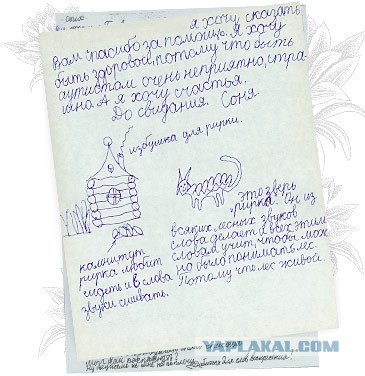 я хочу сказать
Вам спасибо за помощь. Я хочу
быть здоровой, потому что быть
аутистом очень неприятно, стра-
шно. А я хочу счастья.
До свидания. Соня
избушка для рирки.
это зверь
рирка. Он из
всяких лесных звуков
слова делает и всех этим
словам учит, чтобы мож
но было понимать лес.
Потому что лес живой.
калитут
рирка любит
сидеть и в слова
звуки сшивать.
YAPLAKAL.COM